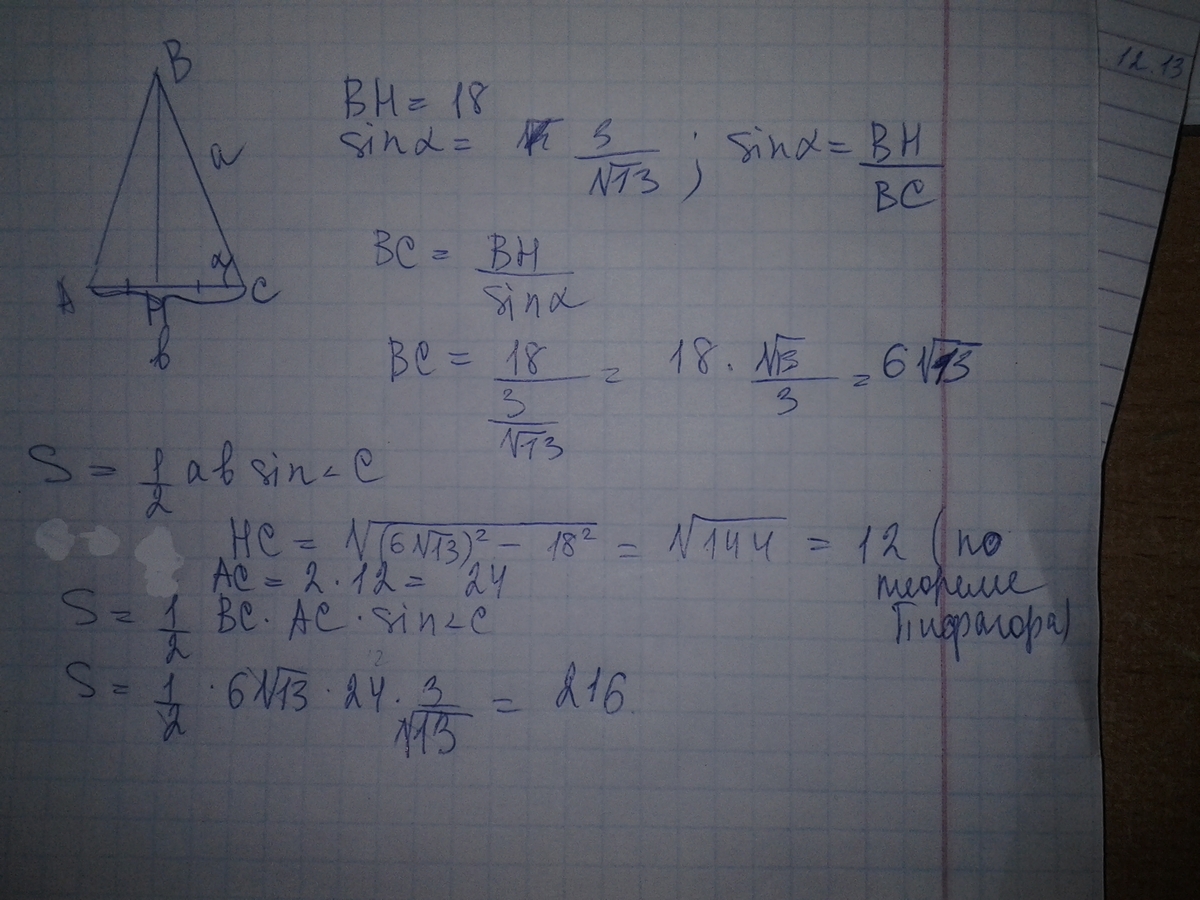 12.13
B
a
α
A H C
b
BH = 18
sinα = 3/√13 ; sinα = BH/BC
BC = BH/sinα
BC = 18/(3/√13) = 18 · √13/3 = 6√13
S = 1/2 ab sin∠C
HC = √((6√13)² - 18²) = √144 = 12 (по теореме Пифагора)
AC = 2·12 = 24
S = 1/2 BC · AC · sin∠C
S = 1/2 · 6√13 · 24 · 3/√13 = 216